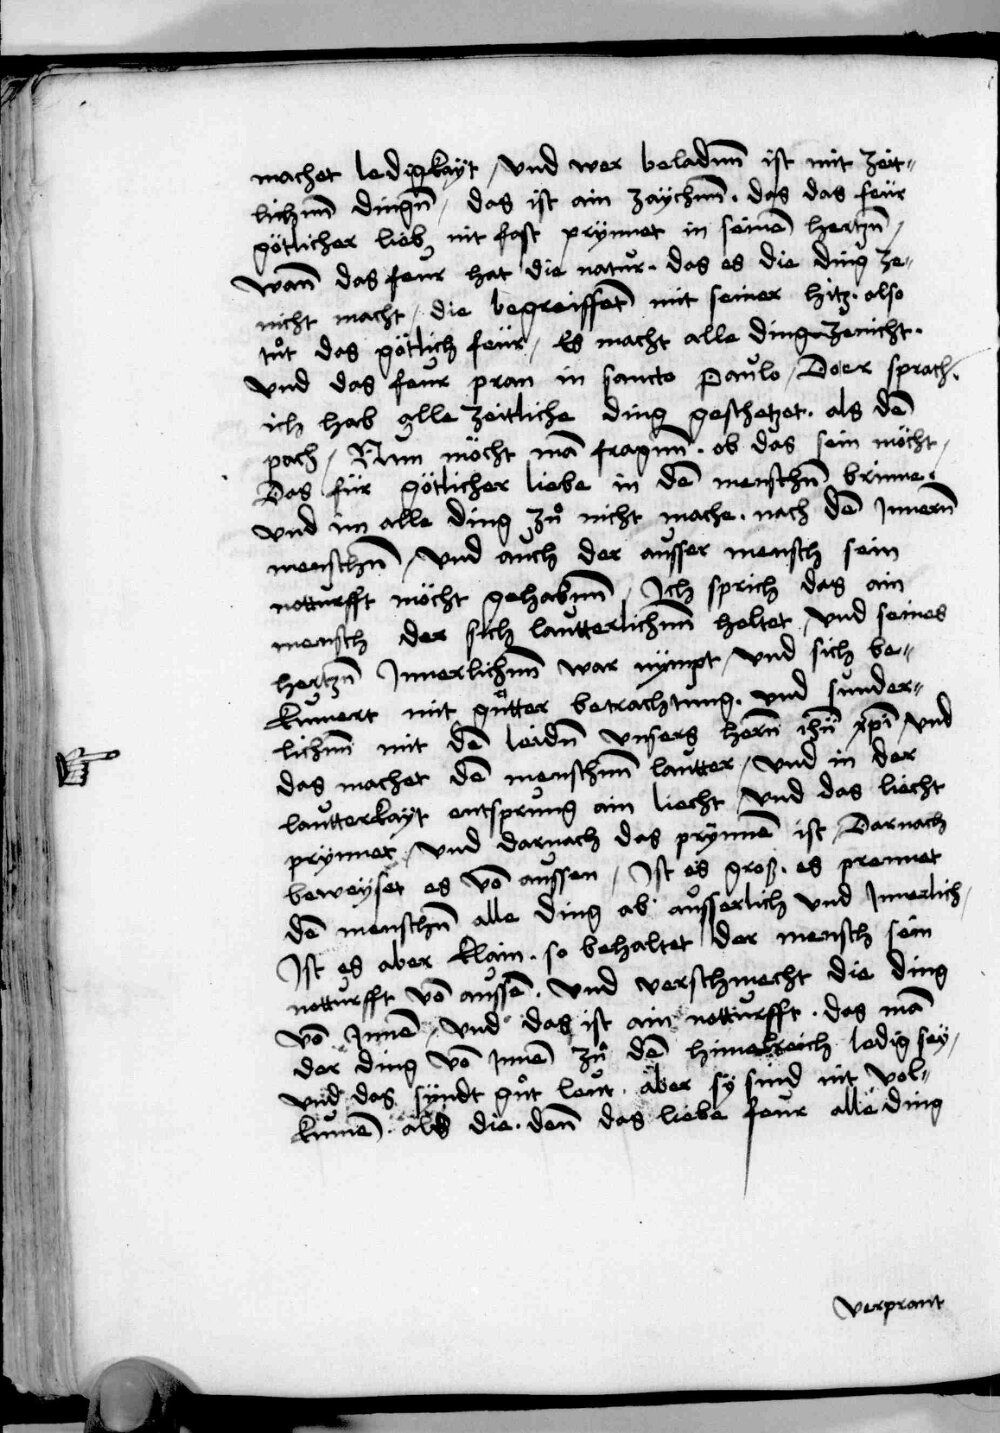 machet ledigkayt / vnd wer beladnn̄ ist mit zeit〃
lichnn̄ dingn̄ / das ist ain zaychnn̄ . das das feür
götlicher lieb nit fast prynnet in seinē hertzn̄ /
Wan̄ das feur hat die natur . das es die ding ze〃
nicht macht / die begreiffet mit seiner hitz . also
tůt das götlich feür / Es macht alle ding zenicht .
vnd das feur pran in sancto Paulo / Do er sprach .
ich hab alle zeitliche ding geschetzet . als dē
pach / Nun möcht mā fragnn̄ . ob das sein möcht /
Das für götlicher liebe in dē menschn̄ brinne .
vnd im alle ding zů nicht mache . nach dē Innern̄
menschn̄ / vnd auch der ausser mensch sein
notturfft möcht gehabnn̄ / Ich sprich das ain
mensch der sich lautterlichnn̄ heltet / vnd seines
hertzn̄ Innerlichnn̄ war nympt / vnd sich be〃
kumert mit gůtter betrachtung . vnd sunder〃
lichnn̄ mit dē leidn̄ vnsers hern̄ ihū xp̄i / vnd
das machet dē menschnn̄ lautter / vnd in der
lautterkayt entsprung ain liecht / vnd das liecht
prynnet / vnd darnach das prynnē ist / Darnach
beweyset es vō aussen / Ist es groß . es prennet
dē menschn̄ alle ding ab ausserlich vnd Innerlich /
Ist es aber klain . so behaltet der mensch sein
notturfft vō aussē . vnd verschmecht die ding
vō Innē / vnd das ist ain notturfft . das mā
der ding vō Innē zů dē himelreich ledig sey /
vnd das syndt gůt leut . aber sy sind nit vol〃
kumē . als die . den̄ das liebe feur alle ding
verprant